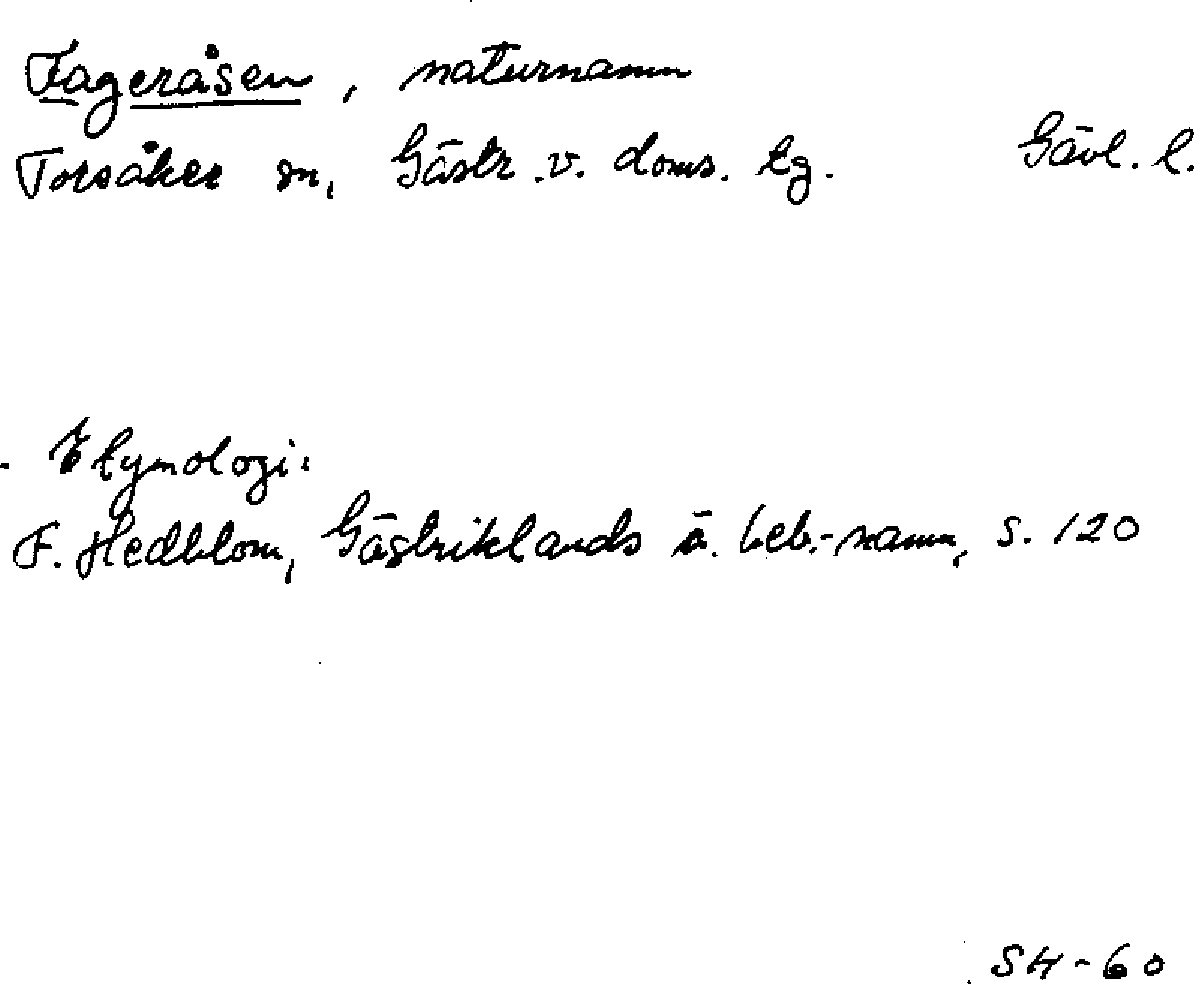 Fageråsen, naturnamn
Torsåker sn, Gästr. v. doms. tg. Gävl. l.
Etymologi:
F. Hedblom, Gästriklands ä. beb.-namn, s. 120
SH-60